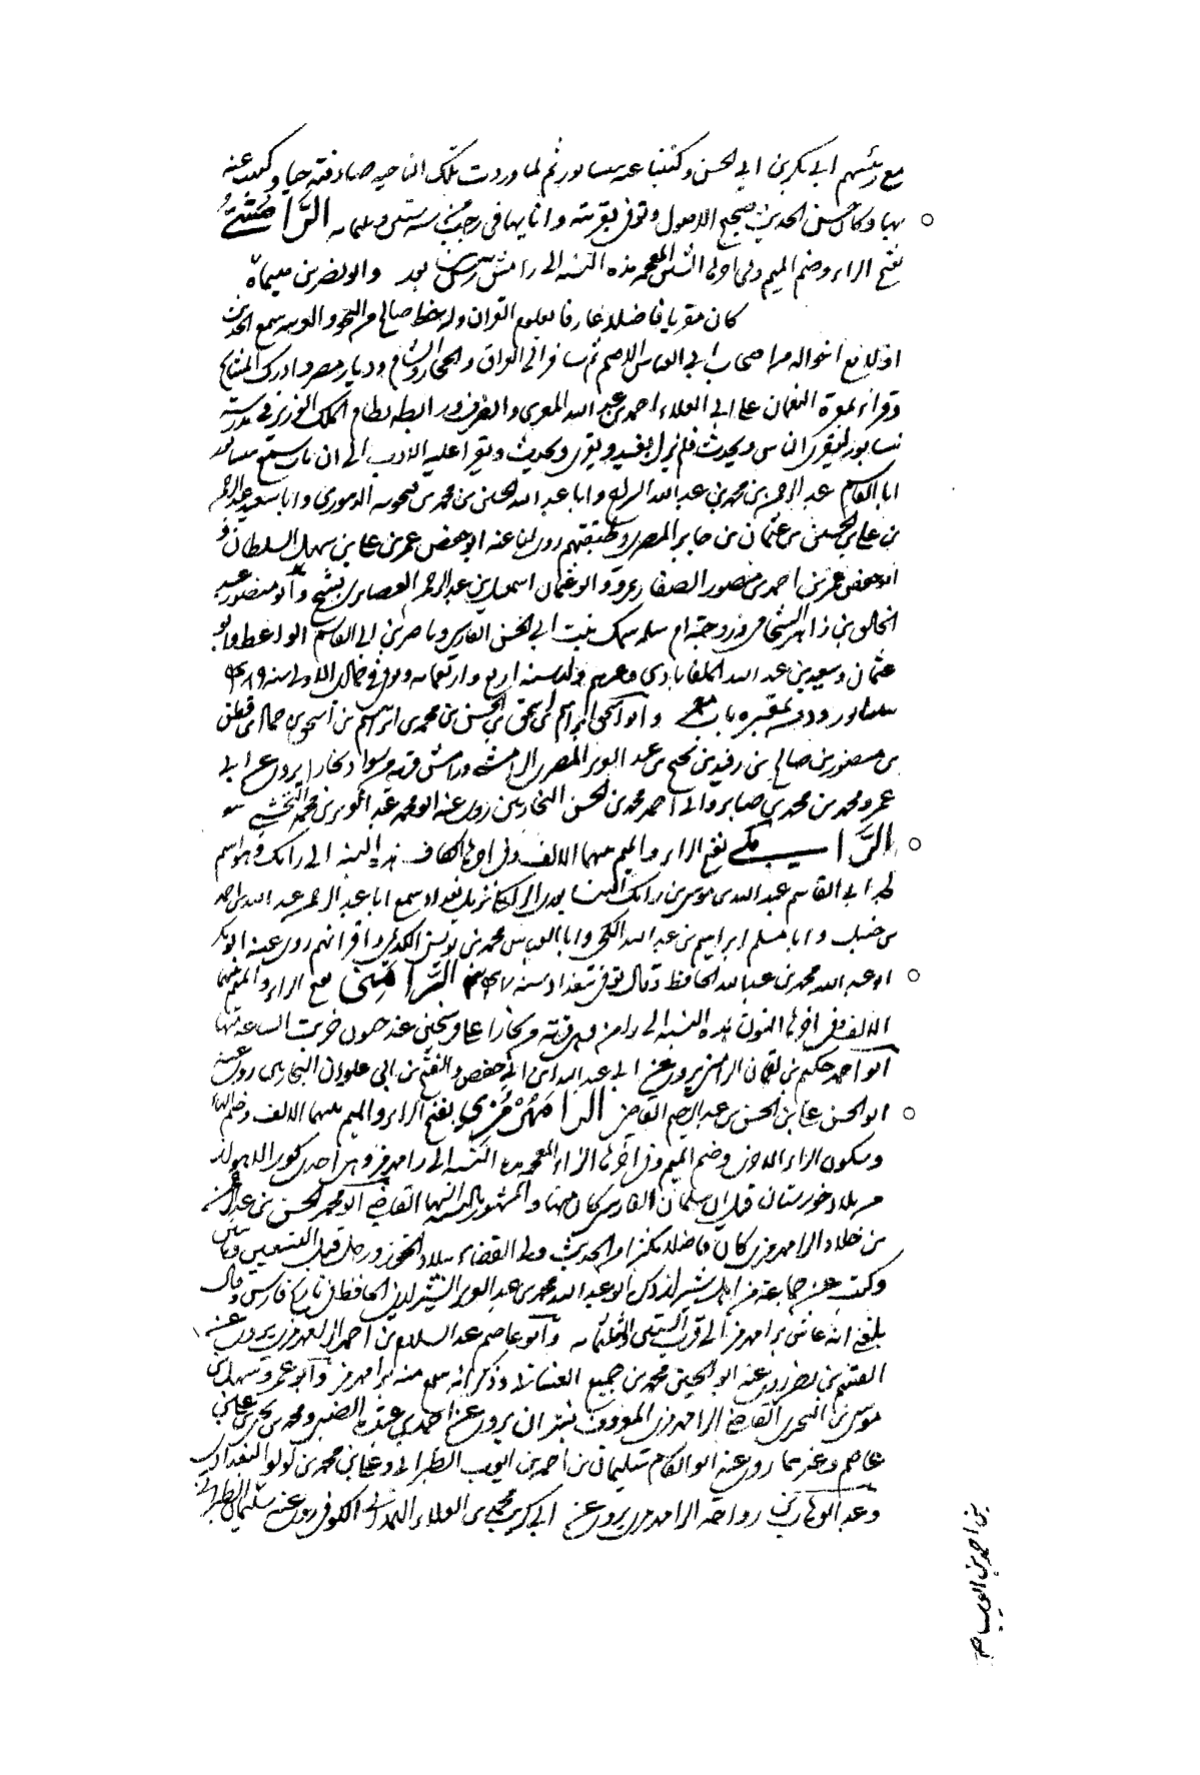 مع رئيسهم ابى بكر بن ابى الحسن وكتبنا عنه بنيسابور ثم لما وردت تلك الناحيه صادفته حيا وكتبت عنه
بها وكان حسن الحديث صحيح الاصول وتوفى بقريته وانا بها فى رجب سنة الرَّامُشِىُّ
بفتح الراء وضم الميم وفى اخرها الشين المعجمه هذه النسبه الى رامش وابو نصر بن
كان مقريا فاضلا عارفا بعلوم القران وله حظ صالح من النحو والعربيه سمع الحديث
مع اخواله من اصحاب ابى العباس الاصم ثم سافر الى العراق والحجاز والشام وديار مصر وادرك المشايخ
وقرا بمعرة النعمان على ابى العلاء احمد بن عبد الله المعرى وانصرف ورابطه نظام الملك الوزير فى مدرسته
بنيسابور ليقرى الناس ويحدث فلم يزل يفيد ويقرى ويحدث ويقرا عليه الادب الى ان مات سمع بنيسابور
ابا القاسم عبد الرحمن بن محمد بن عبد الله السراج وابا عبد الله الحسين بن محمد بن فنجويه الدينورى وابا سعيد عبد الرحمن
بن على بن عثمان بن جابر المصرى وطبقتهم روى لنا عنه ابو حفص عمر بن على بن سهل السلطان
ابو حفص عمر بن احمد بن منصور الصفار بمرو وابو عثمان اسمعيل بن عبد الرحمن العصايرى وابو منصور عبد
الخالق بن زاهر الشحامى وزوجته ام سلمه بنت ابى الحسن الفارسى وناصر بن ابى القاسم الواعظ وابو
عثمان وسعيد بن عبد الله الملقاباذى وغيرهم ولد سنه اربع واربعمايه وتوفى فى جمادى الاولى سنه ٤٨٩
بنيسابور ودفن بمقبره باب معمر وابو اسحق ابراهيم بن اسحق بن الحسن بن محمد بن ابراهيم بن اسحق بن
بن منصور بن صالح بن رفيد بن عبد العزيز المصرى الرامشى ورامش قريه من سواد بخارا يروى عن ابى
عمرو محمد بن محمد بن صابر وابى احمد محمد بن الحسن البخاريين روى عنه ابو محمد عبد العزيز بن محمد النخشبى
الرَّامَكى بفتح الراء والميم بينهما الالف وفى اخرها الكاف هذه النسبه الى رامك وهو اسم
لجد ابى القاسم عبد الله بن موسى بن رامك الرامكى نزيل بغداد سمع ابا عبد الرحمن عبد الله بن احمد
بن حنبل وابا مسلم ابراهيم بن عبد الله الكجى وابا العباس محمد بن يونس الكديمى واقرانهم روى عنه
ابو عبد الله محمد بن عبد الله الحافظ وقال توفى ببغداد سنه ٣٤٧ الرَّامِنى بفتح الراء والميم بينهما
الالف وفى اخرها النون هذه النسبه الى رامن وهى قريه من بخارا على فرسخين عند خربت الساعه منها
ابو احمد حكيم بن لقمان الرامنى يروى عن ابى عبد الله بن ابى حفص والفتح بن ابى علوان البخارى روى عنه
ابو الحسن على بن الحسن بن عبد الرحيم القاضى الرامَهُرْمُزى بفتح الراء والميم بينهما الالف وضم الهاء
وسكون الراء الاخرى وضم الميم وفى اخرها الزاء المعجمه هذه النسبه الى رامهرمز وهى احدى كور الاهواز
من بلاد خوزستان قيل ان سلمان الفارسى كان منها والمشهور بالنسبه اليها القاضى ابو محمد الحسن بن عبد الرحمن
بن خلاد الرامهرمزى كان فاضلا مكثرا من الحديث ولى القضاء ببلاد الخوز ورحل قبل التسعين ومايتين
وكتب عنه جماعة من اهل شيراز ذكره ابو عبد الله محمد بن عبد العزيز الشيرازى الحافظ فى تاريخ فارس وقال
بلغنى انه عاش برامهرمز الى قرب الستين والثلثمايه وابو عاصم عبد السلام بن احمد الرامهرمزى يروى عن
بن نصر روى عنه ابو الحسين محمد بن جميع الغسانى وذكر انه سمع منه برامهرمز وابو عمرو سهل بن
موسى بن البخترى القاضى الرامهرمزى المعروف بشيران يروى عن احمد بن عبده الضبى ومحمد بن يحيى بن على بن
عاصم وغيرهما روى عنه ابو القاسم سليمان بن احمد بن ايوب الطبرانى وعلى بن محمد بن لولو البغدادى
وعبد الوهاب بن رواحه الرامهرمزى يروى عن ابى كريب محمد بن العلاء الهمدانى الكوفى روى عنه سليمان الطبرانى
بن احمد بن ايوب صح